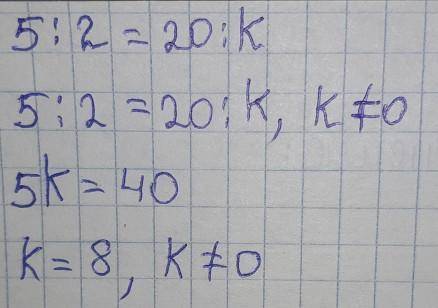 5:2=20:k
5:2=20:k, k≠0
5k=40
k=8, k≠0